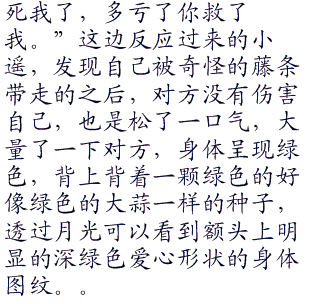 死我了，多亏了你救了
我。”这边反应过来的小
遥，发现自己被奇怪的藤条
带走的之后，对方没有伤害
自己，也是松了一口气，大
量了一下对方，身体呈现绿
色，背上背着一颗绿色的好
像绿色的大蒜一样的种子，
透过月光可以看到额头上明
显的深绿色爱心形状的身体
图纹。。